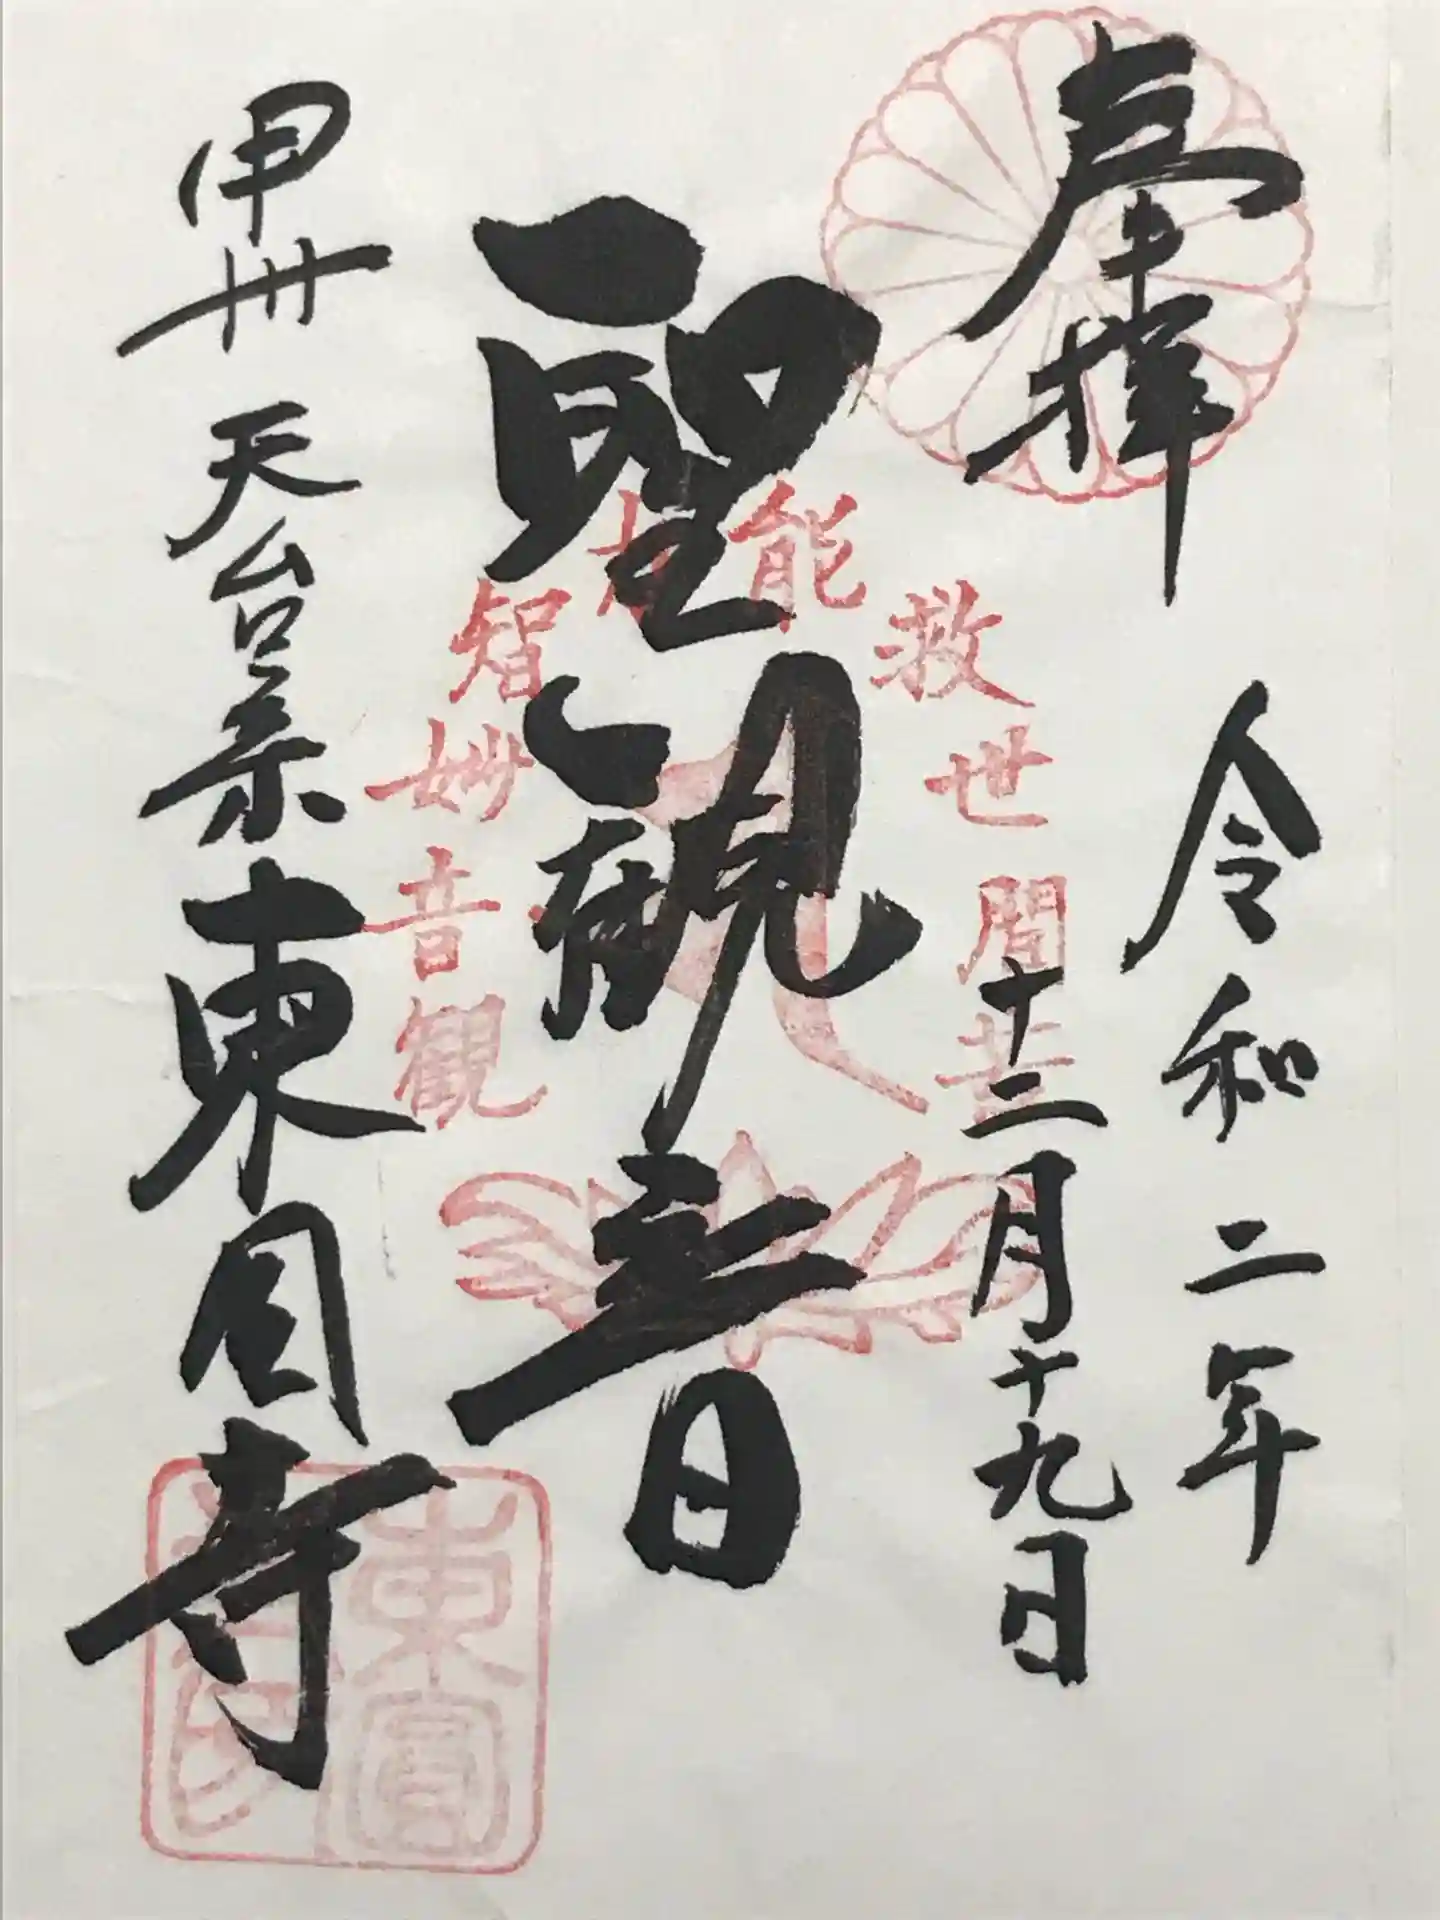 奉拝
令和二年
十二月十九日
聖観音
観音妙智力能救世間苦
甲州 天台宗 東圓寺
東圓寺印